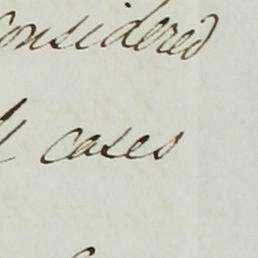 considered
cases